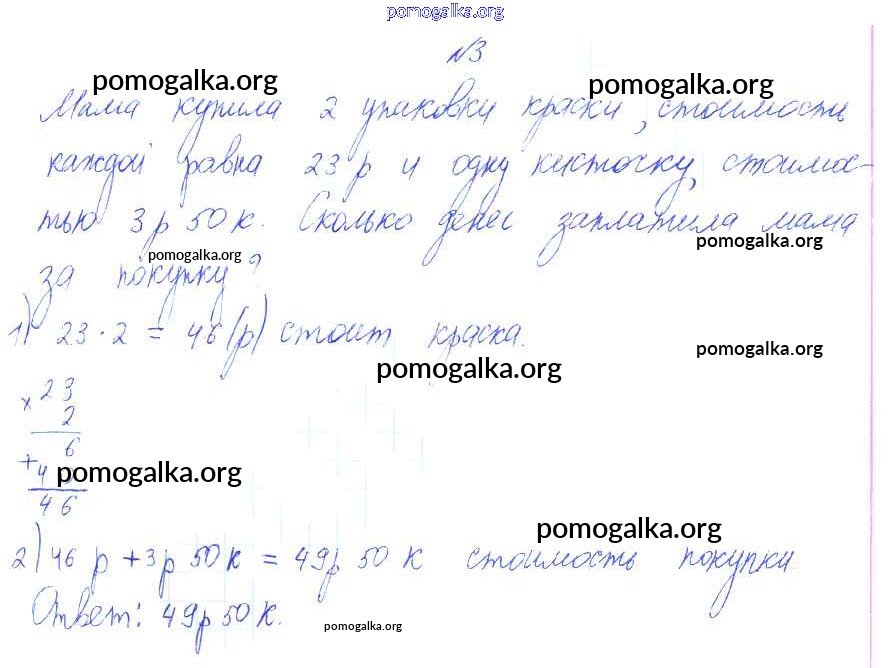 pomogalka.org
№3
pomogalka.org pomogalka.org
Мама купила 2 упаковки краски, стоимость
каждой равна 23 р и одну кисточку, стоимос-
тью 3 р 50 к. Сколько денег заплатила мама
pomogalka.org
за покупку?
pomogalka.org
1) 23 · 2 = 46 (р) стоит краска.
pomogalka.org
pomogalka.org
× 23
2
6
+ 4
pomogalka.org
46
pomogalka.org
2) 46 р + 3 р 50 к = 49 р 50 к стоимость покупки.
Ответ: 49 р 50 к.
pomogalka.org